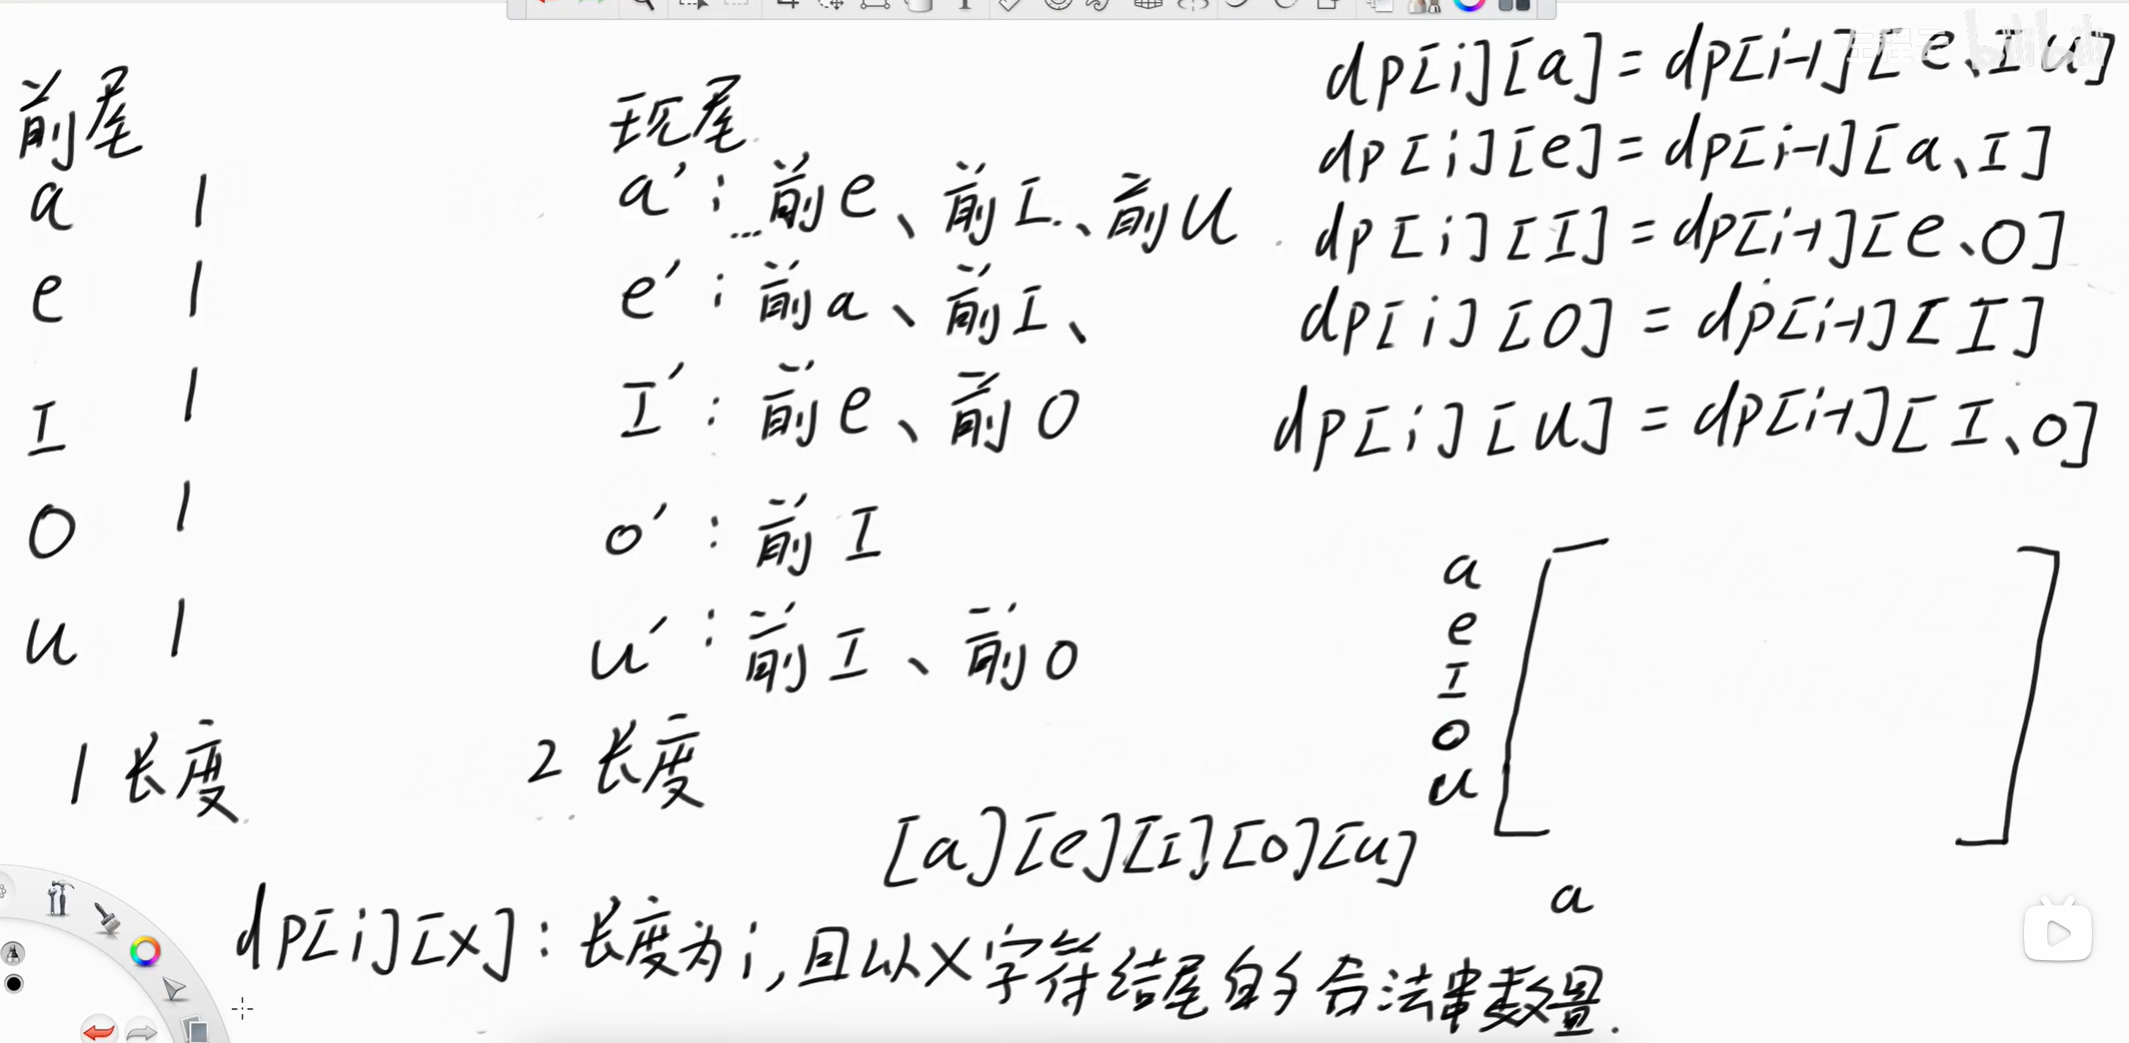 前尾
a 1
e 1
I 1
O 1
u 1
1长度
现尾
a′: 前e、前I、前U
e′: 前a、前I、
I′: 前e、前O
o′: 前I
u′: 前I、前O
2长度
dp[i][a]=dp[i-1][e、I u]
dp[i][e]=dp[i-1][a、I]
dp[i][I]=dp[i-1][e、O]
dp[i][O]=dp[i-1][I]
dp[i][u]=dp[i-1][I、o]
a
e
I
o
u
a
[a][e][I][o][u]
dp[i][x]: 长度为i,且以X字符结尾的合法串数量.